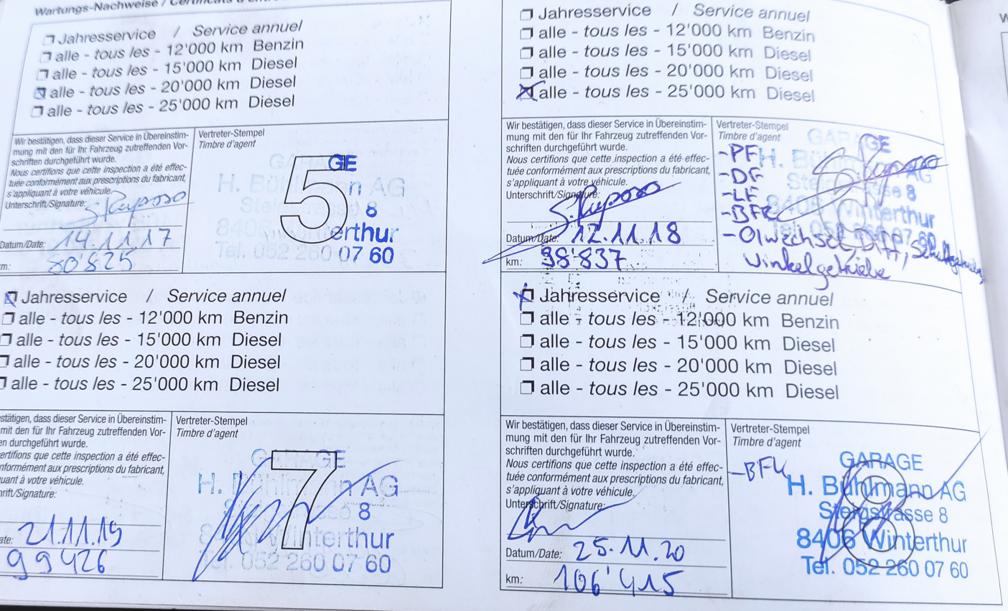 Wartungs-Nachweise / Certificats d'
Jahresservice / Service annuel
alle - tous les - 12'000 km Benzin
alle - tous les - 15'000 km Diesel
alle - tous les - 20'000 km Diesel
alle - tous les - 25'000 km Diesel
Wir bestätigen, dass dieser Service in Übereinstim-
mung mit den für Ihr Fahrzeug zutreffenden Vor-
schriften durchgeführt wurde.
Nous certifions que cette inspection a été effec-
tuée conformément aux prescriptions du fabricant,
s'appliquant à votre véhicule.
Unterschrift/Signature:
Datum/Date: 14.11.17
km: 80'825
Vertreter-Stempel
Timbre d'agent
GE
5
H. B n AG
8
8406 Winterthur
Tel. 052 260 07 60
Jahresservice / Service annuel
alle - tous les - 12'000 km Benzin
alle - tous les - 15'000 km Diesel
alle - tous les - 20'000 km Diesel
alle - tous les - 25'000 km Diesel
Wir bestätigen, dass dieser Service in Übereinstim-
mung mit den für Ihr Fahrzeug zutreffenden Vor-
schriften durchgeführt wurde.
Nous certifions que cette inspection a été effec-
tuée conformément aux prescriptions du fabricant,
s'appliquant à votre véhicule.
Unterschrift/Signature:
Datum/Date: 12.11.18
km: 98'837
Vertreter-Stempel
Timbre d'agent
GARAGE
-PF
-DF
-LF
-BFK
-Ölwechsel, Diff,
Winkelgetriebe
Winterthur
Jahresservice / Service annuel
alle - tous les - 12'000 km Benzin
alle - tous les - 15'000 km Diesel
alle - tous les - 20'000 km Diesel
alle - tous les - 25'000 km Diesel
stätigen, dass dieser Service in Übereinstim-
mit den für Ihr Fahrzeug zutreffenden Vor-
en durchgeführt wurde.
certifions que cette inspection a été effec-
nformément aux prescriptions du fabricant,
quant à votre véhicule.
rift/Signature:
ate: 21.11.19
99426
Vertreter-Stempel
Timbre d'agent
GARAGE
7
AG
8
Winterthur
Tel. 052 260 07 60
Jahresservice / Service annuel
alle - tous les - 12'000 km Benzin
alle - tous les - 15'000 km Diesel
alle - tous les - 20'000 km Diesel
alle - tous les - 25'000 km Diesel
Wir bestätigen, dass dieser Service in Übereinstim-
mung mit den für Ihr Fahrzeug zutreffenden Vor-
schriften durchgeführt wurde.
Nous certifions que cette inspection a été effec-
tuée conformément aux prescriptions du fabricant,
s'appliquant à votre véhicule.
Unterschrift/Signature:
Datum/Date: 25.11.20
km: 106'415
Vertreter-Stempel
Timbre d'agent
-BFK
GARAGE
H. Bühlmann AG
Stegstrasse 8
8406 Winterthur
Tel. 052 260 07 60
8